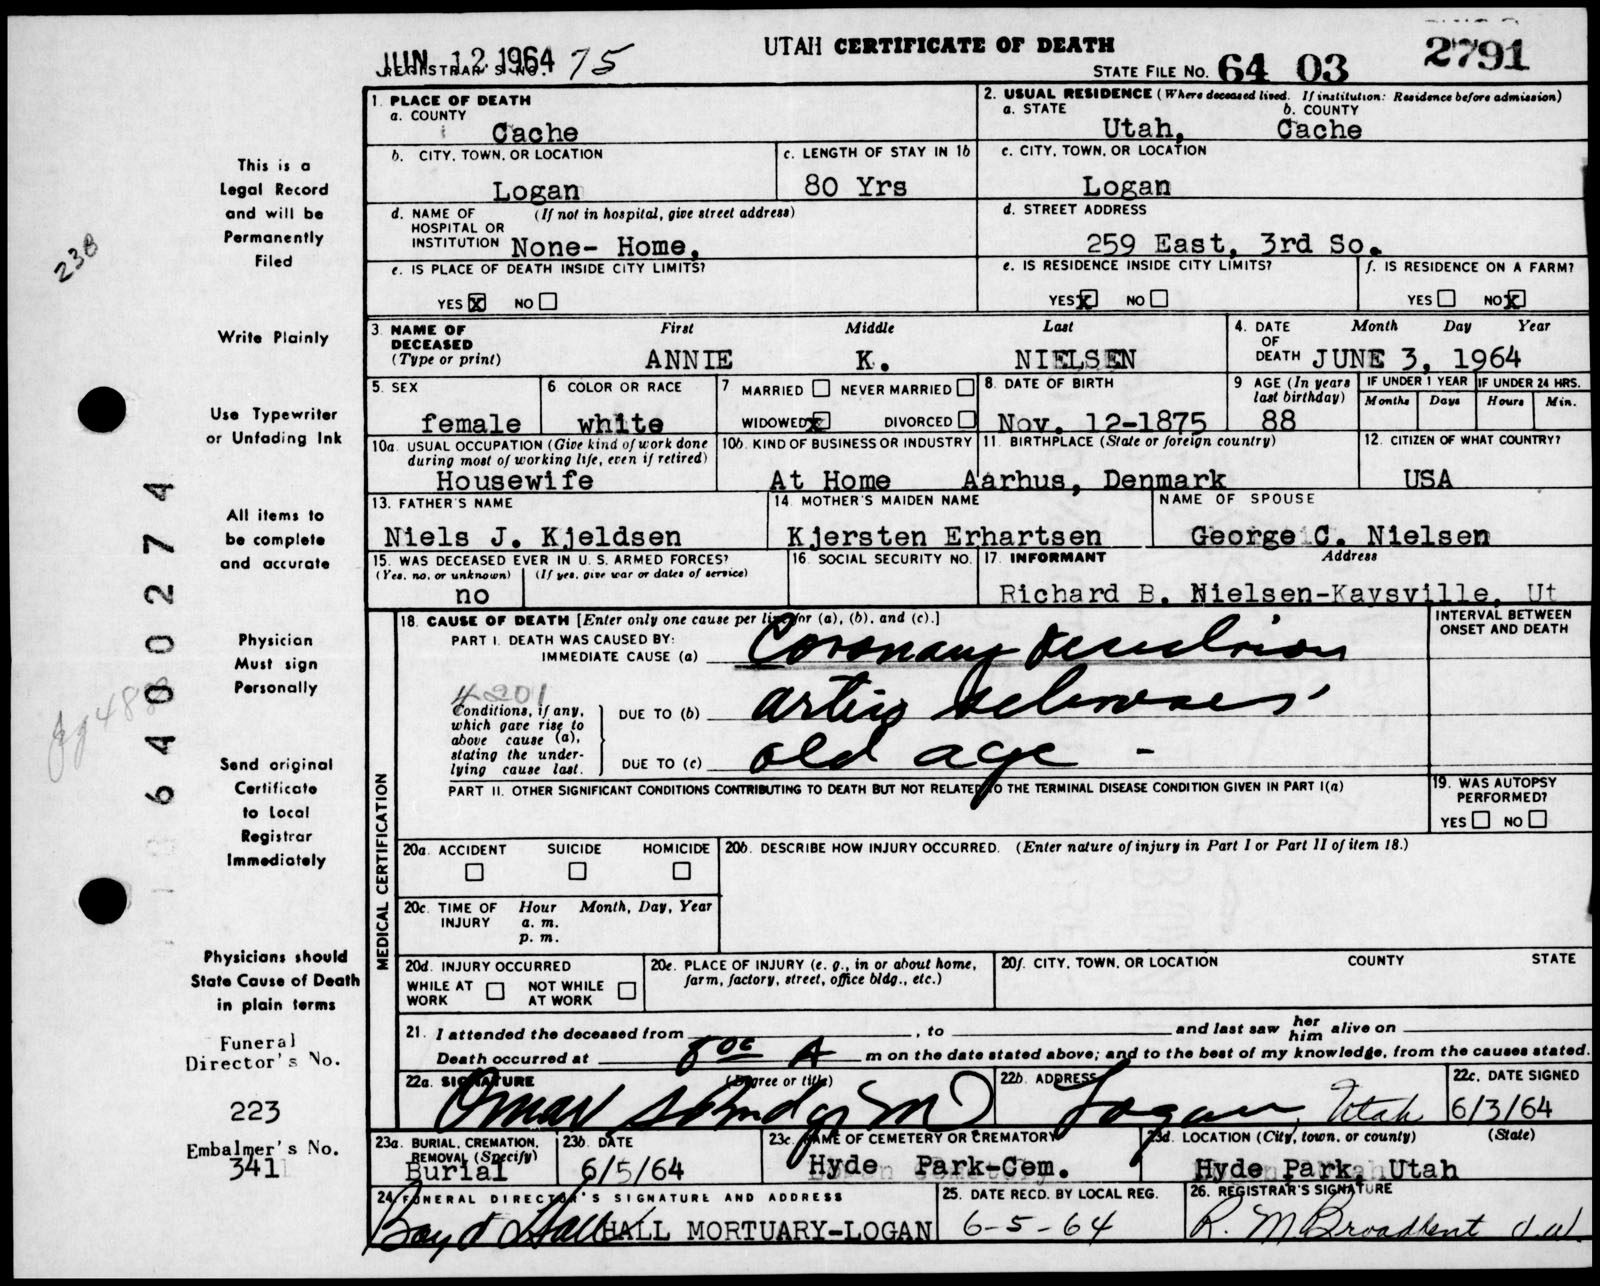 JUN 12 1964
UTAH CERTIFICATE OF DEATH
2791
REGISTRAR'S NO. 75
STATE FILE NO. 64 03
1. PLACE OF DEATH
a. COUNTY
Cache
2. USUAL RESIDENCE (Where deceased lived. If institution: Residence before admission)
a. STATE b. COUNTY
Utah, Cache
b. CITY, TOWN, OR LOCATION
Logan
c. LENGTH OF STAY IN 1b
80 Yrs
c. CITY, TOWN, OR LOCATION
Logan
d. NAME OF HOSPITAL OR INSTITUTION (If not in hospital, give street address)
None- Home,
d. STREET ADDRESS
259 East, 3rd So.
e. IS PLACE OF DEATH INSIDE CITY LIMITS?
YES X NO
e. IS RESIDENCE INSIDE CITY LIMITS?
YES X NO
f. IS RESIDENCE ON A FARM?
YES NO X
3. NAME OF DECEASED (Type or print)
First Middle Last
ANNIE K. NIELSEN
4. DATE OF DEATH
Month Day Year
JUNE 3, 1964
5. SEX
female
6 COLOR OR RACE
white
7 MARRIED NEVER MARRIED
WIDOWED X DIVORCED
8. DATE OF BIRTH
Nov. 12-1875
9 AGE (In years last birthday)
88
IF UNDER 1 YEAR
Months Days
IF UNDER 24 HRS.
Hours Min.
10a. USUAL OCCUPATION (Give kind of work done during most of working life, even if retired)
Housewife
10b. KIND OF BUSINESS OR INDUSTRY
At Home
11. BIRTHPLACE (State or foreign country)
Aarhus, Denmark
12. CITIZEN OF WHAT COUNTRY?
USA
13. FATHER'S NAME
Niels J. Kjeldsen
14. MOTHER'S MAIDEN NAME
Kjersten Erhartsen
NAME OF SPOUSE
George C. Nielsen
15. WAS DECEASED EVER IN U. S. ARMED FORCES?
(Yes, no, or unknown) (If yes, give war or dates of service)
no
16. SOCIAL SECURITY NO.
17. INFORMANT Address
Richard B. Nielsen-Kaysville, Ut
MEDICAL CERTIFICATION
18. CAUSE OF DEATH [Enter only one cause per line for (a), (b), and (c).]
INTERVAL BETWEEN ONSET AND DEATH
PART I. DEATH WAS CAUSED BY:
IMMEDIATE CAUSE (a) Coronary
4201
Conditions, if any, which gave rise to above cause (a), stating the underlying cause last.
DUE TO (b)
DUE TO (c) old age -
PART II. OTHER SIGNIFICANT CONDITIONS CONTRIBUTING TO DEATH BUT NOT RELATED TO THE TERMINAL DISEASE CONDITION GIVEN IN PART I(a)
19. WAS AUTOPSY PERFORMED?
YES NO
20a. ACCIDENT SUICIDE HOMICIDE
20b. DESCRIBE HOW INJURY OCCURRED. (Enter nature of injury in Part I or Part II of item 18.)
20c. TIME OF INJURY Hour Month, Day, Year
a. m.
p. m.
20d. INJURY OCCURRED
WHILE AT WORK NOT WHILE AT WORK
20e. PLACE OF INJURY (e. g., in or about home, farm, factory, street, office bldg., etc.)
20f. CITY, TOWN, OR LOCATION COUNTY STATE
21. I attended the deceased from , to and last saw her him alive on
Death occurred at 8 00 A m on the date stated above; and to the best of my knowledge, from the causes stated.
22a. SIGNATURE (Degree or title)
Omar
22b. ADDRESS
Logan, Utah
22c. DATE SIGNED
6/3/64
23a. BURIAL, CREMATION, REMOVAL (Specify)
Burial
23b. DATE
6/5/64
23c. NAME OF CEMETERY OR CREMATORY
Hyde Park-Cem.
23d. LOCATION (City, town, or county) (State)
Hyde Park, Utah
24. FUNERAL DIRECTOR'S SIGNATURE AND ADDRESS
Boyd Hall HALL MORTUARY-LOGAN
25. DATE RECD. BY LOCAL REG.
6-5-64
26. REGISTRAR'S SIGNATURE
R. M Broadbent
This is a
Legal Record
and will be
Permanently
Filed
238
Write Plainly
Use Typewriter
or Unfading Ink
All items to
be complete
and accurate
Physician
Must sign
Personally
Send original
Certificate
to Local
Registrar
Immediately
Physicians should
State Cause of Death
in plain terms
Funeral
Director's No.
223
Embalmer's No.
341
6400274